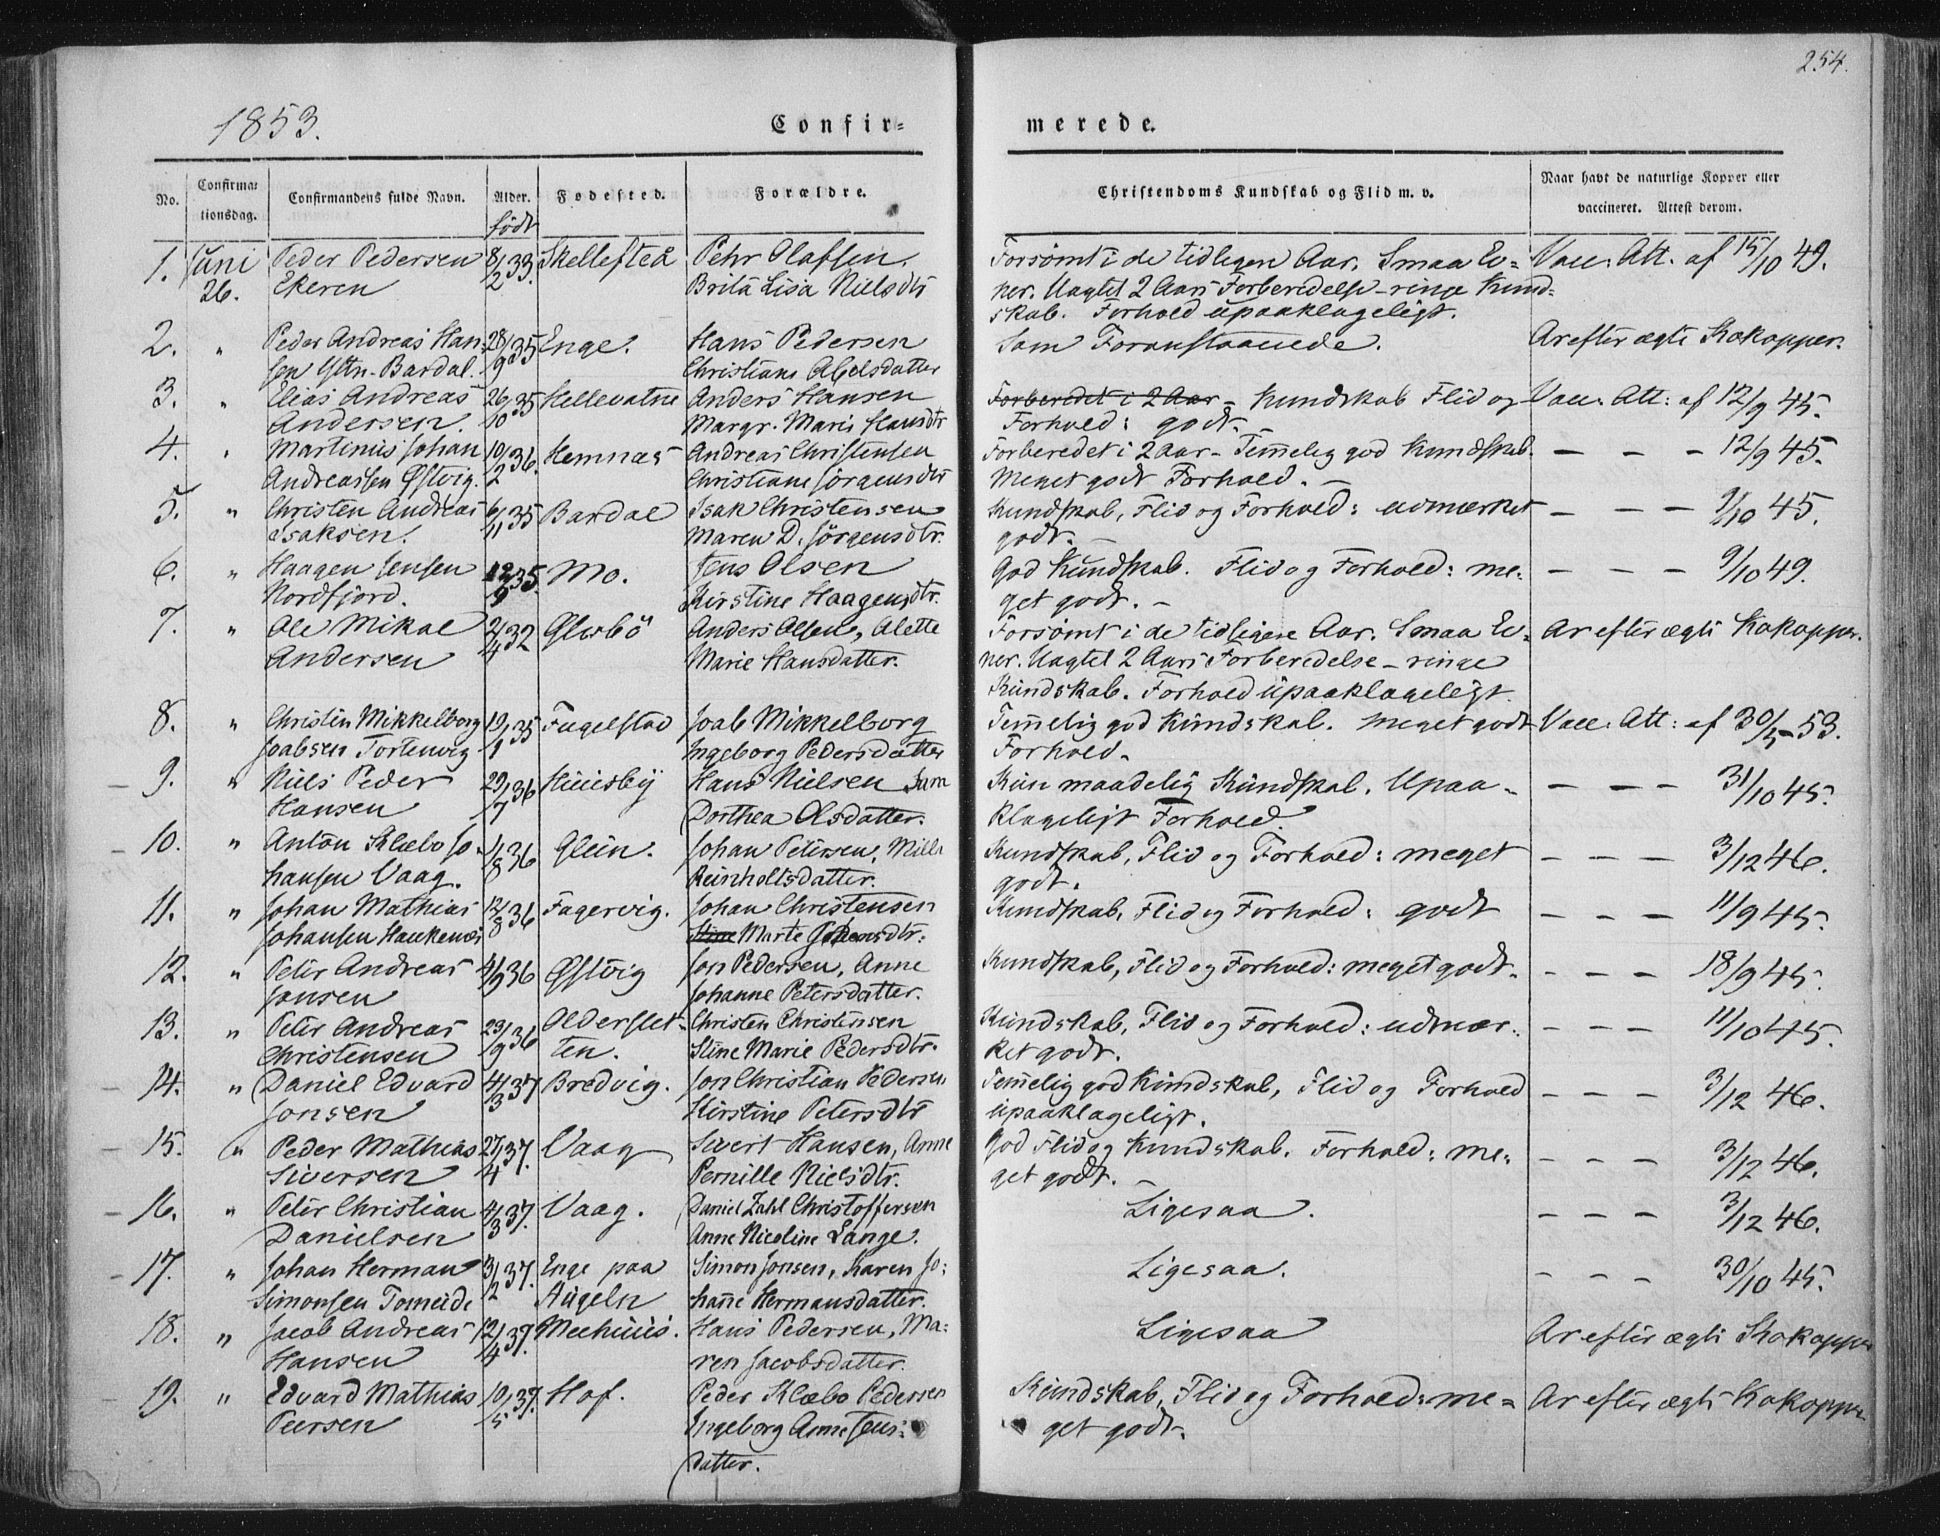 254.
1853.
Confir= merede.
No. Confirma=tionsdag. Confirmandens fulde Navn. Alder. født Fødested. Forældre. Christendoms Kundskab og Flid m. v. Naar havt de naturlige Kopper eller vaccineret. Attest derom.
1. Juni Peder Pedersen 8/2 33. Skellefteå Pehr Olafsen. Forsømt i de tidligere Aar. Smaa Ev= Vacc. Att. af 15/10 49.
26. Ekeren Brita Lisa Nielsdtr ner. Uagtet 2 Aars Forberedelse - ringe Kund=
skab. Forhold upaaklageligt.
2. " Peder Andreas Han= 28/9 35 Enge. Hans Pedersen Som Foranstaaende. Ar efter ægte Kokopper.
sen Ytn-Bardal. Christiane Abelsdatter
3. " Elias Andreas 26/10 35 Hellevatne Anders Hansen Forberedet i 2 Aar - Kundskab Flid og Vacc. Att: af 12/9 45.
Andersen. Margr. Marie Hansdtr Forhold: godt.
4. " Martinus Johan 10/2 36. Hemnæs Andreas Christensen Forberedet i 2 Aar - Temelig god Kundskab. — — — 12/9 45.
Andreassen Østvig. Christiane Jørgensdtr Meget godt Forhold. —
5. " Christen Andreas 6/11 35 Bardal Isak Christensen Kundskab, Flid og Forhold: udmærket — — — 9/10 45.
Isaksen. Maren D. Jörgensdtr. godt. —
6. " Haagen Jensen 35. Mo. Jens Olsen God Kundskab. Flid og Forhold: me= — — — 9/10 49.
Nordfjord. Kirstine Haagensdtr. get godt. —
7. " Ole Mikal 2/4 32 Anders Olsen, Alette Forsømt i de tidligere Aar. Smaa Ev= Ar efter ægte Kokopper.
Andersen Marie Hansdatter. ner. Uagtet 2 Aars Forberedelse - ringe
Kundskab. Forhold upaaklageligt.
8. " Christen Mikkelborg 19/1 35 Fagelstad Joab Mikkelborg Temelig god Kundskab. Meget godt Vacc. Att: af 30/5 53.
Joabsen Tortenvig Ingeborg Pedersdatter Forhold.
9. " Niels Peder 29/7 36 Huusby Hans Nielsen Kun maadelig Kundskab. Upaa= — — — 31/10 45.
Hansen Dorthea Olsdatter. klageligt Forhold.
10. " Anton Klæbo Jo= 1/8 36 Glein. Johan Petersen, Kundskab, Flid og Forhold: meget — — — 3/12 46.
hansen Vaag. Reinholtsdatter. godt.
11. " Johan Mathias 12/8 36 Fagervig. Johan Christensen Kundskab, Flid og Forhold: godt — — — 11/9 45.
Johansen Haukenæs Stine Marte dtr: 
12. " Peter Andreas 4/9 36 Østvig Jon Pedersen, Anne Kundskab, Flid og Forhold: meget godt. — — — 18/9 45.
Jonsen Johanne Petersdatter.
13. " Peter Andreas 23/9 36 Olderslet= Christen Christensen Kundskab, Flid og Forhold: udmær= — — — 11/10 45.
Christensen ten. Stine Marie Pedersdtr. ket godt.
14. " Daniel Edvard 4/3 37. Bredvig. Jon Christian Pedersen Temelig god Kundskab, Flid og Forhold — — — 3/12 46.
Jonsen Kirstine Petersdtr upaaklageligt.
15. " Peder Mathias 27/4 37. Vaag Sivert Hansen, Anne God Flid og Kundskab. Forhold: me= — — — 3/12 46.
Siversen Pernille Nielsdtr. get godt.
16. " Peter Christian 4/3 37. Vaag. Daniel Zahl Christoffersen Ligesaa. — — — 3/12 46.
Danielsen Anne Nicoline Lange.
17. " Johan Herman 3/2 37. Enge paa Simon Jonsen, Karen Jo= Ligesaa. — — — 30/10 45.
Simonsen Tomeide Aügeln hane Hermansdatter.
18. " Jacob Andreas 12/4 37. Meehuus. Hans Pedersen, Ma= Ligesaa Ar efter ægte Kokopper
Hansen ren Jacobsdatter.
19. " Edvard Mathias 10/5 37. Hof. Peder Klæbo Pedersen Kundskab, Flid og Forhold: me= Ar efter ægte Kokopper
Peersen Ingeborg Anne Jens= get godt.
datter.